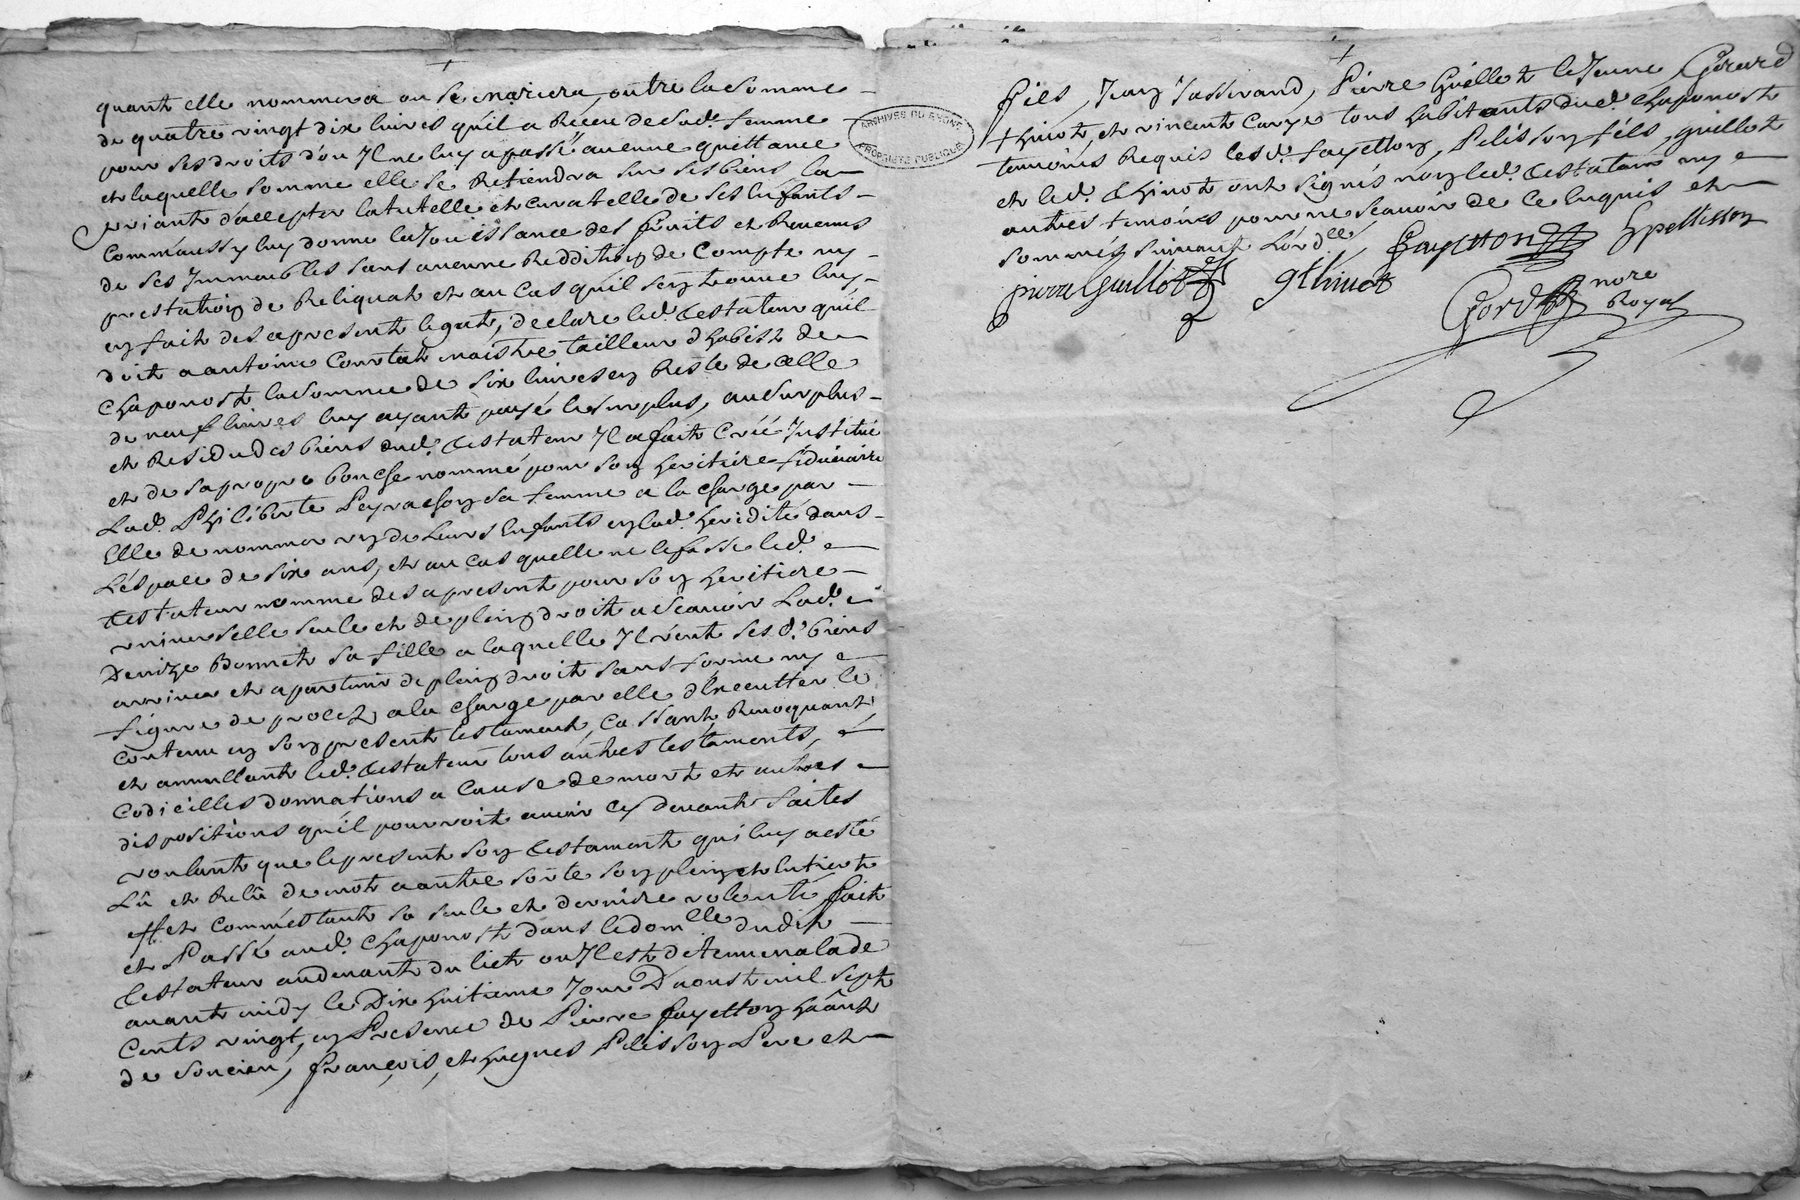 quant elle nommera ou se mariera, outre la somme
de quatre vingt dix livres qu'il a Receu de sad. femme
pour ses droits d'ou Il ne luy a passé aucune quittance
et laquelle somme elle se Retiendra sur ses biens, la
priant d'accepter la tutelle et curatelle de ses Enfants
Comm'aussy luy donne la Jouissance des fruits et Revenus
de ses Immeubles sans aucune Reddition de Compte ny
prestation de Reliquat et au cas qu'il s'en trouve luy
en fait des a present legat, declare led. testateur qu'il
doit a antoine Constat maistre tailleur d'habits de
Chaponost la somme de six livres en Reste de celle
de neuf livres luy ayant payé le surplus, au surplus
et Residu des biens dud. testateur Il a fait Créé Institué
et de sa propre bouche nommé pour son heritiere fiduciaire
Lad. Philiberte Peyrachon sa femme a la charge par
Elle de nommer un de Leurs Enfants en lad. heridité dans
L'espace de six ans, et au cas quelle ne le fasse led.
testateur nomme des a present pour son heritiere
universelle seule et de plein droit a scauoir Lad.
Denize Bonnet sa fille a laquelle Il veut ses d. biens
arriver et apartenir de plein droit sans forme ny
figure de procez a la charge par elle d'Executter le
contenu en son present testament, Cassant, Revoquant
et annullant led. testateur tous autres testaments,
Codicilles donnations a cause de mort et autres
dispositions qu'il pourroit avoir cy devant faites
voulant que le present son testament qui luy a esté
Lû et Relû de mot a autre sorte son plein et Entier
effet comm'estant sa seule et derniere volenté fait
et Passé aud. Chaponost dans le dom.lle dudit
testateur au devant du lict ou Il est detenu malade
avant midy le Dix huitieme Jour D'aoust mil sept
Cents vingt, en Presence de Pierre fayetton h'ânt
de Soucieu, françois, et hugues Pelisson Pere et
fils, Jean Jasserand, Pierre Guillot le Jeune Gerard
thinot, et vincent Caryé tous habitants dud. Chaponost
temoins Requis lesd. fayetton, Pelisson fils, guillot
et led. thinot ont signés non led. testateur ny
autres temoins pour ne scauoir de ce Enquis et
sommés suivant L'ord.ce
fayetton
h pelisson
pierre Guillot
g thinot
Gord
nore
Royal
ARCHIVES DU RHÔNE
PROPRIÉTÉ PUBLIQUE